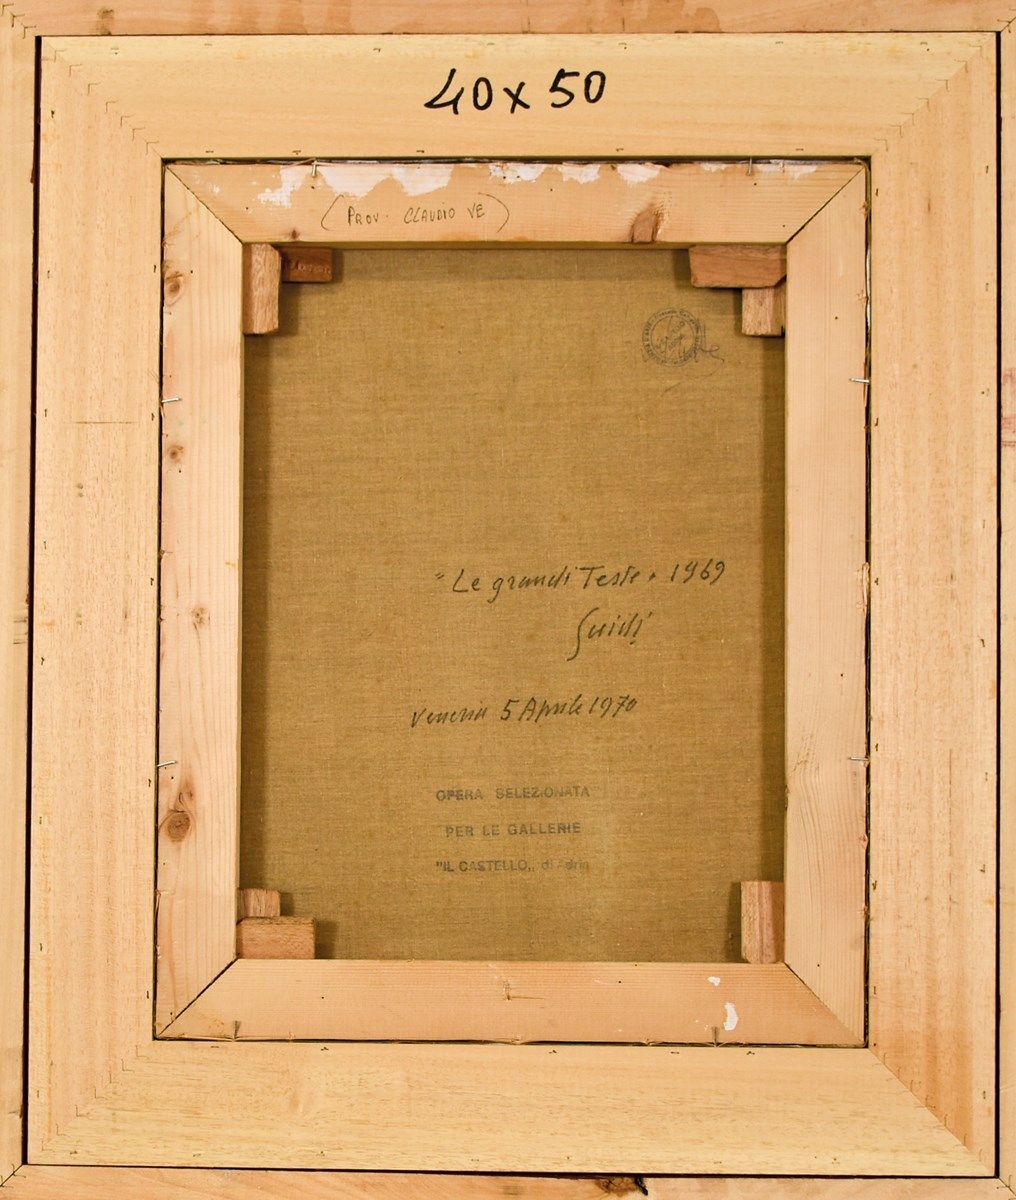 40 x 50
(PROV. CLAUDIO VE)
"Le grandi Teste" 1969
Guidi
Venezia 5 Aprile 1970
OPERA SELEZIONATA
PER LE GALLERIE
"IL CASTELLO„ di